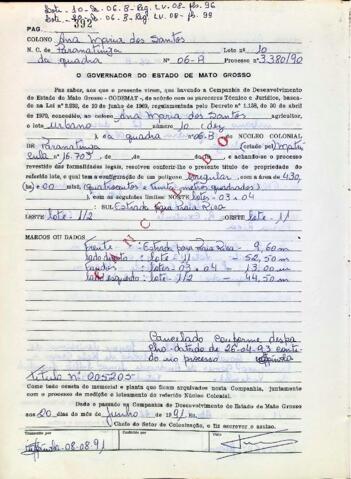 Lote - 10 - Qda - 06. B - Reg. Lv. 08 - fls. 96
06. B - Reg. Lv. 08 - fls. 99
PAG. 392
COLONO Ana Maria dos Santos
N. C. de Paranatinga Lote nº 10
da quadra Nº 06-B Processo nº 3.380/90
O GOVERNADOR DO ESTADO DE MATO GROSSO
Faz saber, aos que a presente virem, que havendo a Companhia de Desenvolvimento
do Estado de Mato Grosso - CODEMAT -, de acordo com os pareceres Técnico e Jurídico, basea-
da na Lei nº de 10 de junho de 1969, regulamentada pelo Decreto nº 1.138, de 30 de abril
de 1970, concedido, ao colono Ana Maria dos Santos
agricultor, o lote Urbano número 10 (dez)
da quadra nº 06-B do NÚCLEO COLONIAL
DE Paranatinga (criado pela Matrí
cula nº 16.703, de , e achando-se o processo
revestido das formalidades legais, resolveu conferir-lhe o presente título de propriedade do
referido lote, o qual tem a configuração de um polígono irregular, com a área de 430,
00 m² (quatrocentos e trinta metros quadrados)
) com as seguintes limites: NORTE lotes - 03 e 04
SUL Estrada para Raia Rica
LESTE lote - 1/2 OESTE lote - 11
CANCELADO
MARCOS OU DADOS
Frente : Estrada para Raia Rica - 9,60 m
lado direito : lote - 11 - 52,50 m
Fundos : lotes - 03 e 04 - 13,00 m
lado esquerdo : lote - 1/2 - 44,50 m
Cancelado conforme despa
cho datado de 26-04-93 conti
do no processo
Título nº 005205
Como tudo consta do memorial e planta que ficam arquivados nesta Companhia, juntamente
com o processo de medição e loteamento do referido Núcleo Colonial.
Dada e passada na Companhia de Desenvolvimento do Estado de Mato Grosso
aos 20 dias do mês de junho de 1991.
Chefe do Setor de Colonização, a fiz escrever e assino.
Transcrito por
Conferido por
08-08-91